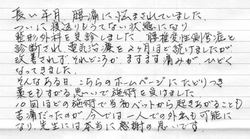 長い年月 腰痛に悩まされていました。
ついに寝返りもうてない状態になり
整形外科を受診しました。腰椎変性側弯症と
診断され 電気治療を2ヶ月ほど続けましたが
改善されず それどころか ますます痛みが ひどく
なってきました。
そんなある日、こちらのホームページにたどりつき
藁をもすがる思いで施術を受けました。
10回ほどの施術で当初ベットから起きあがることも
苦痛だったのが 今では一人での外歩も可能に
なり、先生には本当に感謝の思いです